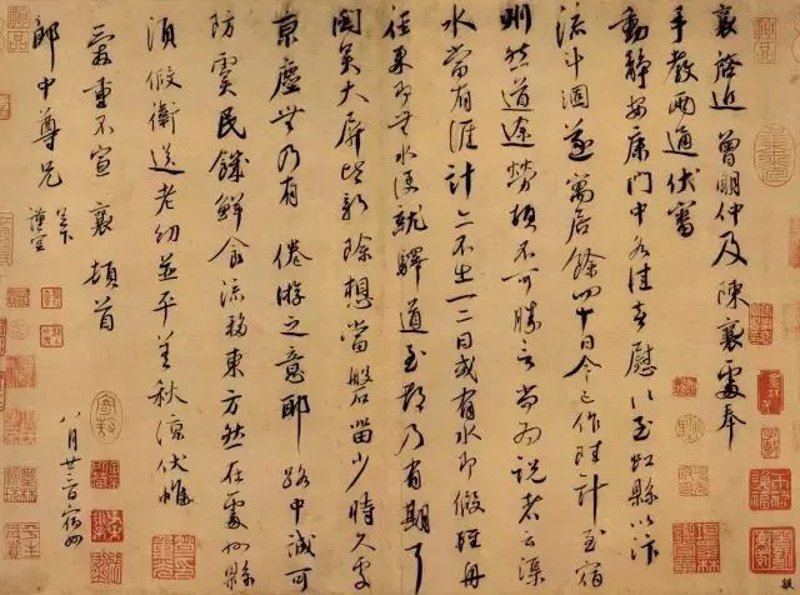 襄啓近曾明仲及陳襄處奉
手教兩通伏審
動靜安康門中各佳喜慰至虹縣以汴
流斗涸遂寓居餘四十日今已作陸計至宿
州然道途勞頓不可勝言尚為說者云渠
水當有涯計亦不出一二日或有水即假輕舟
徑來即無水便就驛道至都乃有期耳
聞吳大屏皆新除想當磐留少時久處
京塵無乃有倦游之意耶路中誠可
防虞民饑鮮食流移東方然在處州縣
須假衛送老幼並平善秋涼伏惟
愛重不宣襄頓首
郎中尊兄
謹空
八月廿二日宿州